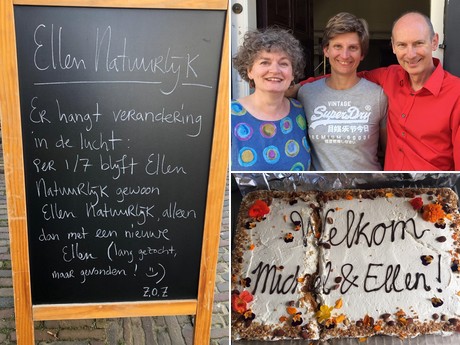 Ellen Natuurlijk
Er hangt verandering
in de lucht:
Per 1/7 blijft Ellen
Natuurlijk gewoon
Ellen Natuurlijk, alleen
dan met een nieuwe
Ellen (lang gezocht,
maar gevonden! :))
Z.O.Z
VINTAGE
SuperDry
Welkom
Michiel & Ellen!